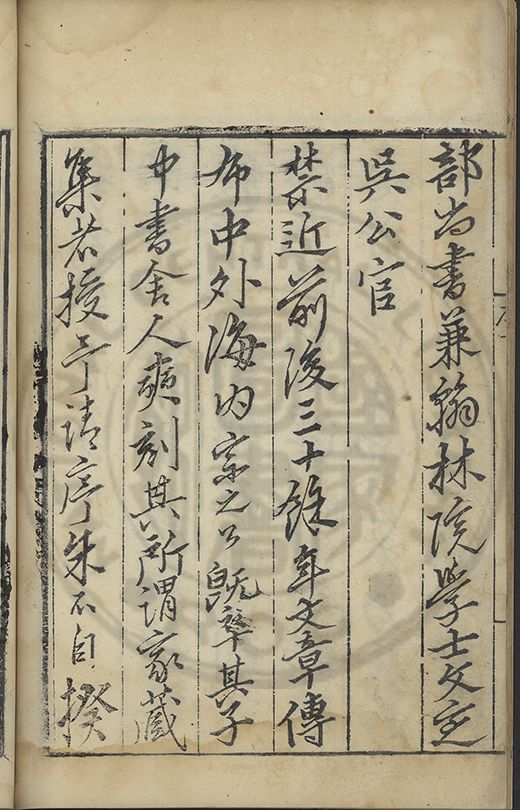 部尚書兼翰林院學士文定
吳公官
禁近前後三十餘年文章傳
布中外海内宗之公既卒其子
中書舍人奭刻其所謂家藏
集者授予請序不自揆